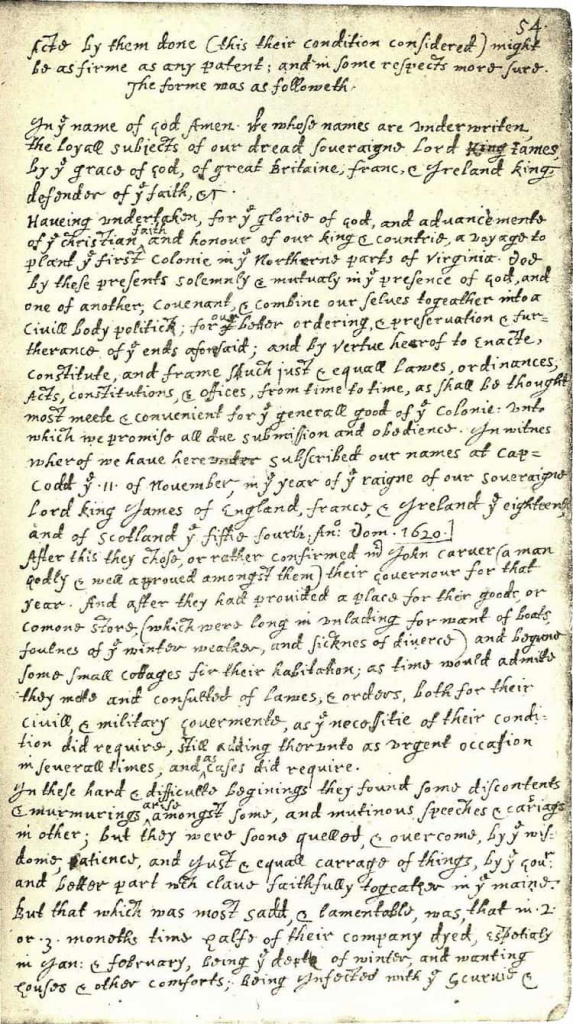 54
Acts by them done (this their condition considered) might
be as firme as any patent; and in some respects more sure.
The forme was as followeth.
In yᵉ name of god Amen. We whose names are underwriten,
the loyall subjects of our dread soveraigne Lord King James,
by yᵉ grace of god, of great Britaine, franc, & Ireland king,
defender of yᵉ faith, &c.
Haveing undertaken, for yᵉ glorie of god, and advancemente
of yᵉ christian faith and honour of our king & countrie, a voyage to
plant yᵉ first colonie in yᵉ Northerne parts of Virginia. Doe
by these presents solemnly & mutualy in yᵉ presence of god, and
one of another, covenant, & combine our selves togeather into a
Civill body politick; for our better ordering, & preservation & fur-
therance of yᵉ ends aforesaid; and by vertue hearof to Enacte,
constitute, and frame shuch just & equall Lawes, ordinances,
Acts, constitutions, & offices, from time to time, as shall be thought
most meete & convenient for yᵉ generall good of yᵉ Colonie: unto
which we promise all due submission and obedience. In witnes
wherof we have hereunder subscribed our names at Cap=
Codd yᵉ .11. of November, in yᵉ year of yᵉ raigne of our soveraigne
Lord king James of England, france, & Ireland yᵉ eighteenth
and of Scotland yᵉ fiftie fourth. An°: Dom. 1620.]
After this they chose, or rather confirmed mʳ John carver (a man
godly & well aproved amongst them) their governour for that
year. And after they had provided a place for their goods, or
comone store, (which were long in unlading for want of boats,
foulnes of yᵉ winter weather, and sicknes of diverce) and begune
some small cottages for their habitation; as time would admitte
they mette and consulted of lawes, & orders, both for their
civill & military govermente, as yᵉ necessitie of their condi-
tion did require, still adding therunto as urgent occasion
in severall times, and as cases did require.
In these hard & difficulte beginings they found some discontents
& murmurings arise amongst some, and mutinous speeches & cariags
in other; but they were soone quelled, & overcome, by yᵉ wis-
dome, patience, and just & equall carrage of things, by yᵉ Govʳ
and better part wch clave faithfully togeather in yᵉ maine.
But that which was most sadd, & lamentable, was, that in .2.
or .3. moneths time halfe of their company dyed, espetialy
in Jan: & february, being yᵉ depth of winter, and wanting
houses & other comforts; being Infected with yᵉ Scurvie &